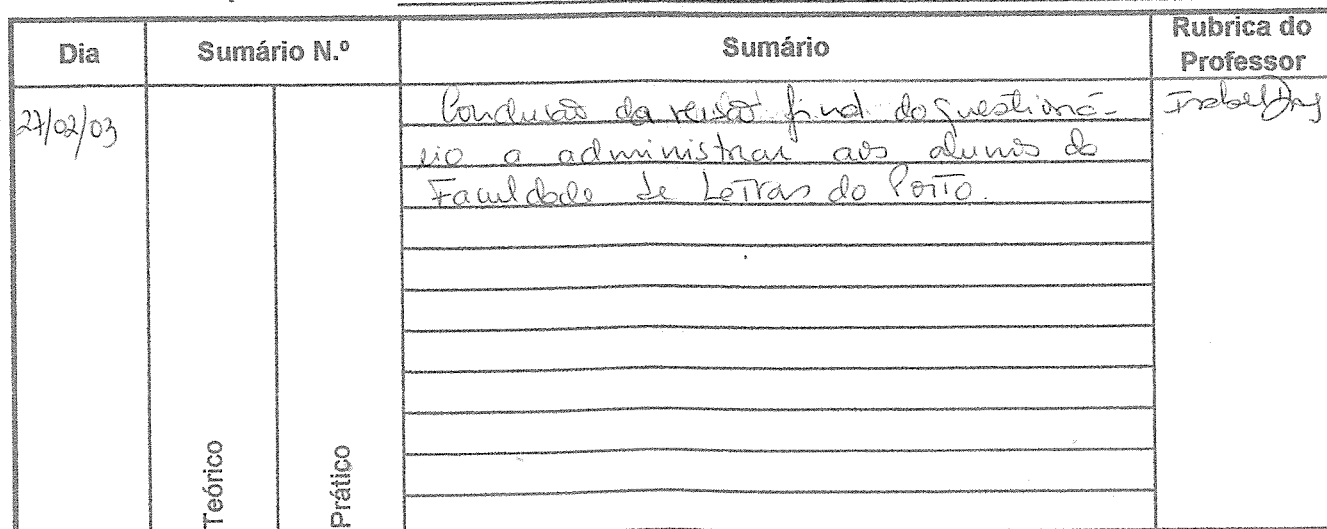 Dia Sumário N.º Sumário Rubrica do Professor
27/02/03 Conclusão da revisão final do questioná-
rio a administrar aos alunos da
Faculdade de Letras do Porto.
Isabel Dias
Teórico Prático